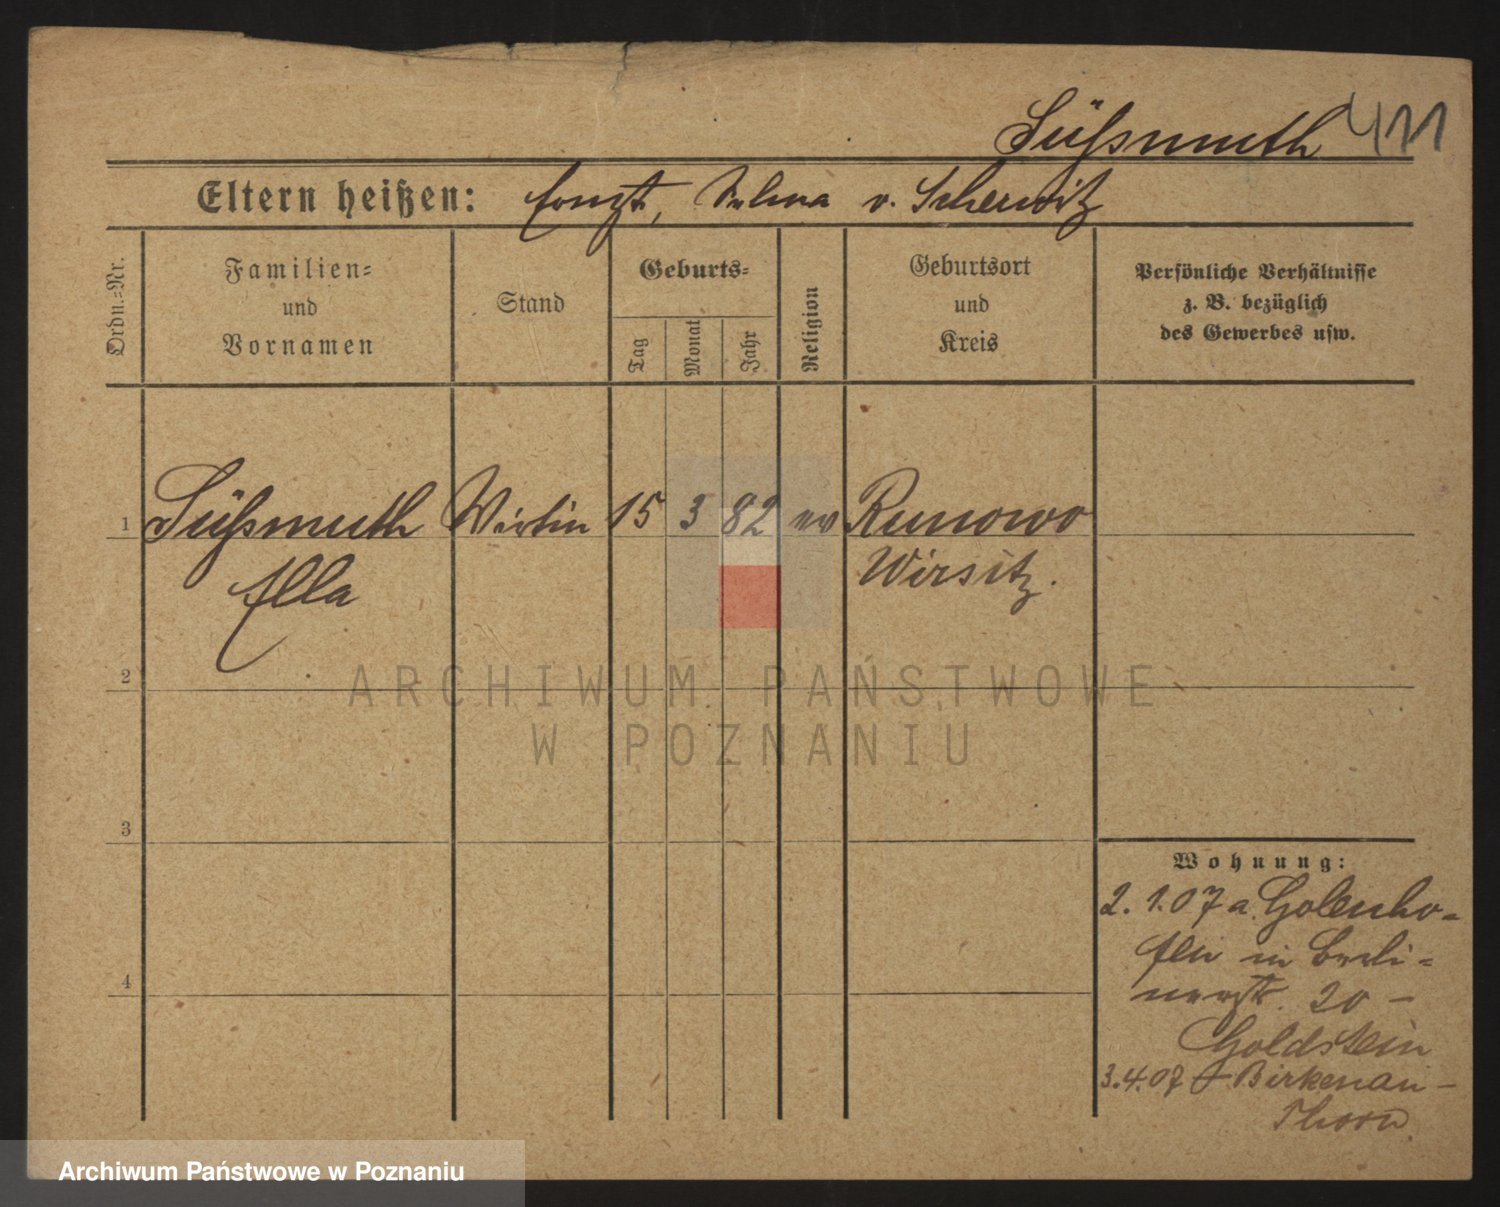 Süßmuth 411
Eltern heißen: Ernst, Selma v. Scherwitz
Ordn.-Nr.
Familien-
und
Vornamen
Stand
Geburts-
Tag
Monat
Jahr
Religion
Geburtsort
und
Kreis
Persönliche Verhältnisse
z. B. bezüglich
des Gewerbes usw.
1 Süßmuth Wirtin 15 3 82 ev Runowo
Ella Wirsitz.
2
ARCHIWUM PAŃSTWOWE
W POZNANIU
3
Wohnung:
2. 1. 07 a. Golenho-
fen in Berli-
nerstr. 20 -
Goldstein
3. 4. 07 Birkenau -
Thorn.
4
Archiwum Państwowe w Poznaniu